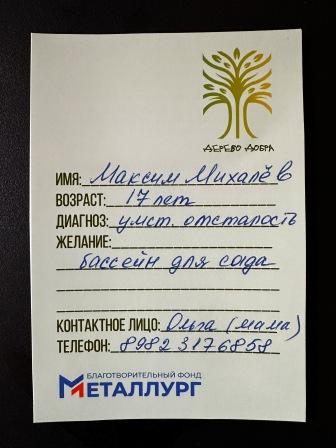 ДЕРЕВО ДОБРА
ИМЯ: Максим Михалёв
ВОЗРАСТ: 17 лет
ДИАГНОЗ: умст. отсталость
ЖЕЛАНИЕ:
бассейн для сада
КОНТАКТНОЕ ЛИЦО: Ольга (мама)
ТЕЛЕФОН: 8982 3176858
БЛАГОТВОРИТЕЛЬНЫЙ ФОНД
МЕТАЛЛУРГ